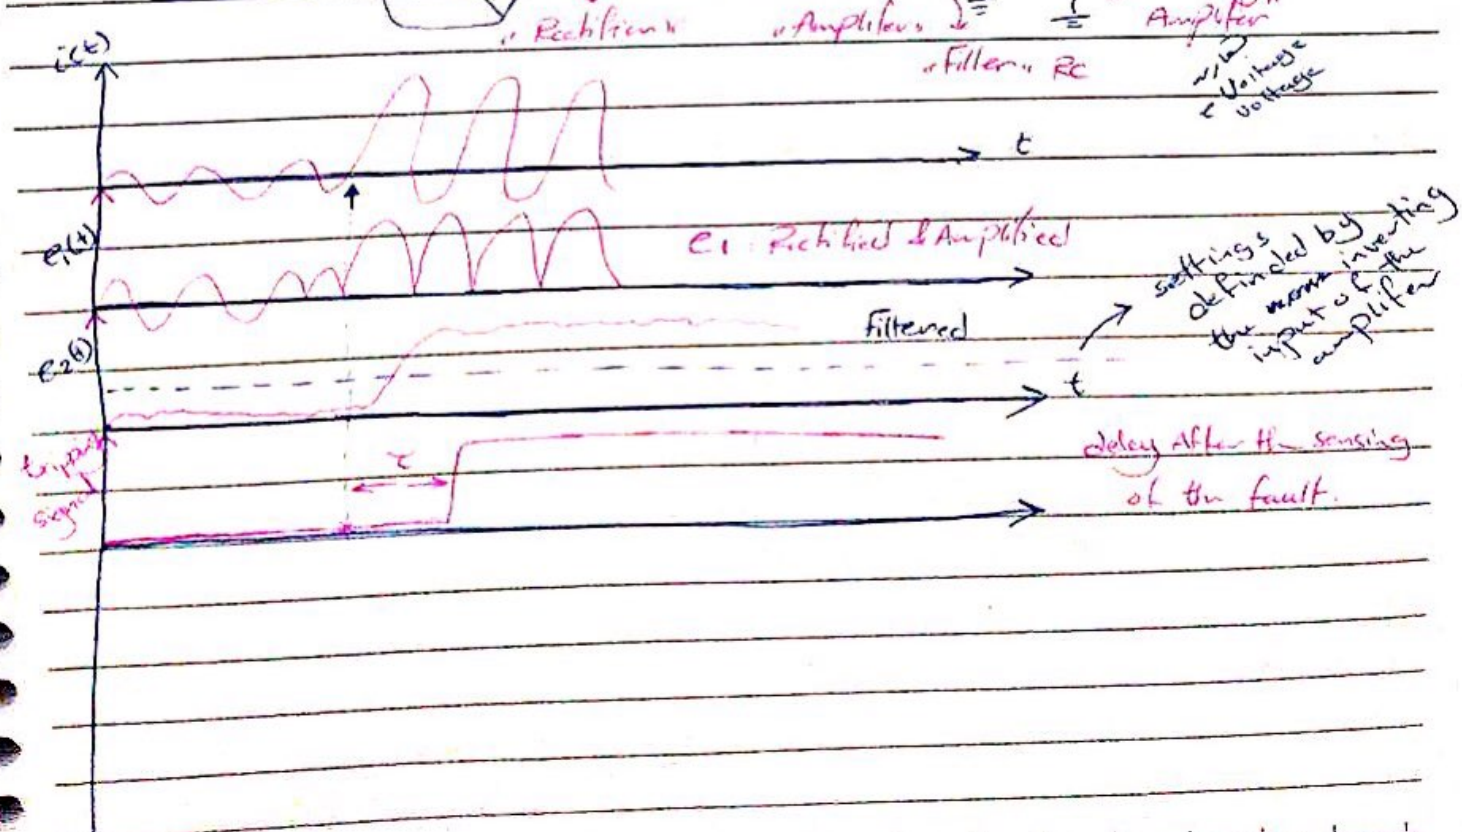 "Rectifier"
"Amplifer"
Amplifer"
"Filter" RC
Voltage
voltage
i(t)
t
e1(t)
e1 : Rectified & Amplified
settings
definded by
the inverting
input of the
amplifer
e2(t)
filtered
t
signal
τ
delay After the sensing
of the fault.